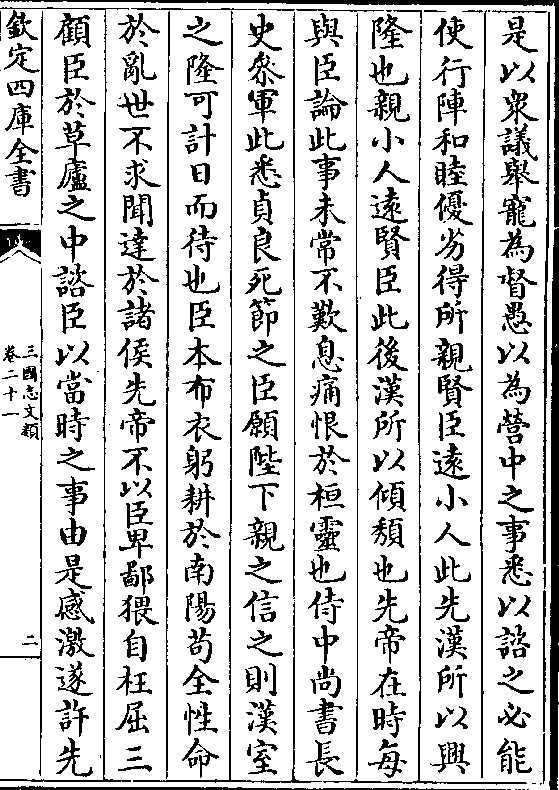 是以衆議舉寵為督愚以為營中之事悉以諮之必能
使行陣和睦優劣得所親賢臣遠小人此先漢所以興
隆也親小人遠賢臣此後漢所以傾頽也先帝在時每
與臣論此事未常不歎息痛恨於桓靈也侍中尚書長
史參軍此悉貞良死節之臣願陛下親之信之則漢室
之隆可計日而待也臣本布衣躬耕於南陽苟全性命
於亂世不求聞達於諸侯先帝不以臣卑鄙猥自枉屈三
顧臣於草廬之中諮臣以當時之事由是感激遂許先
欽定四庫全書
三國志文類
卷二十一
二